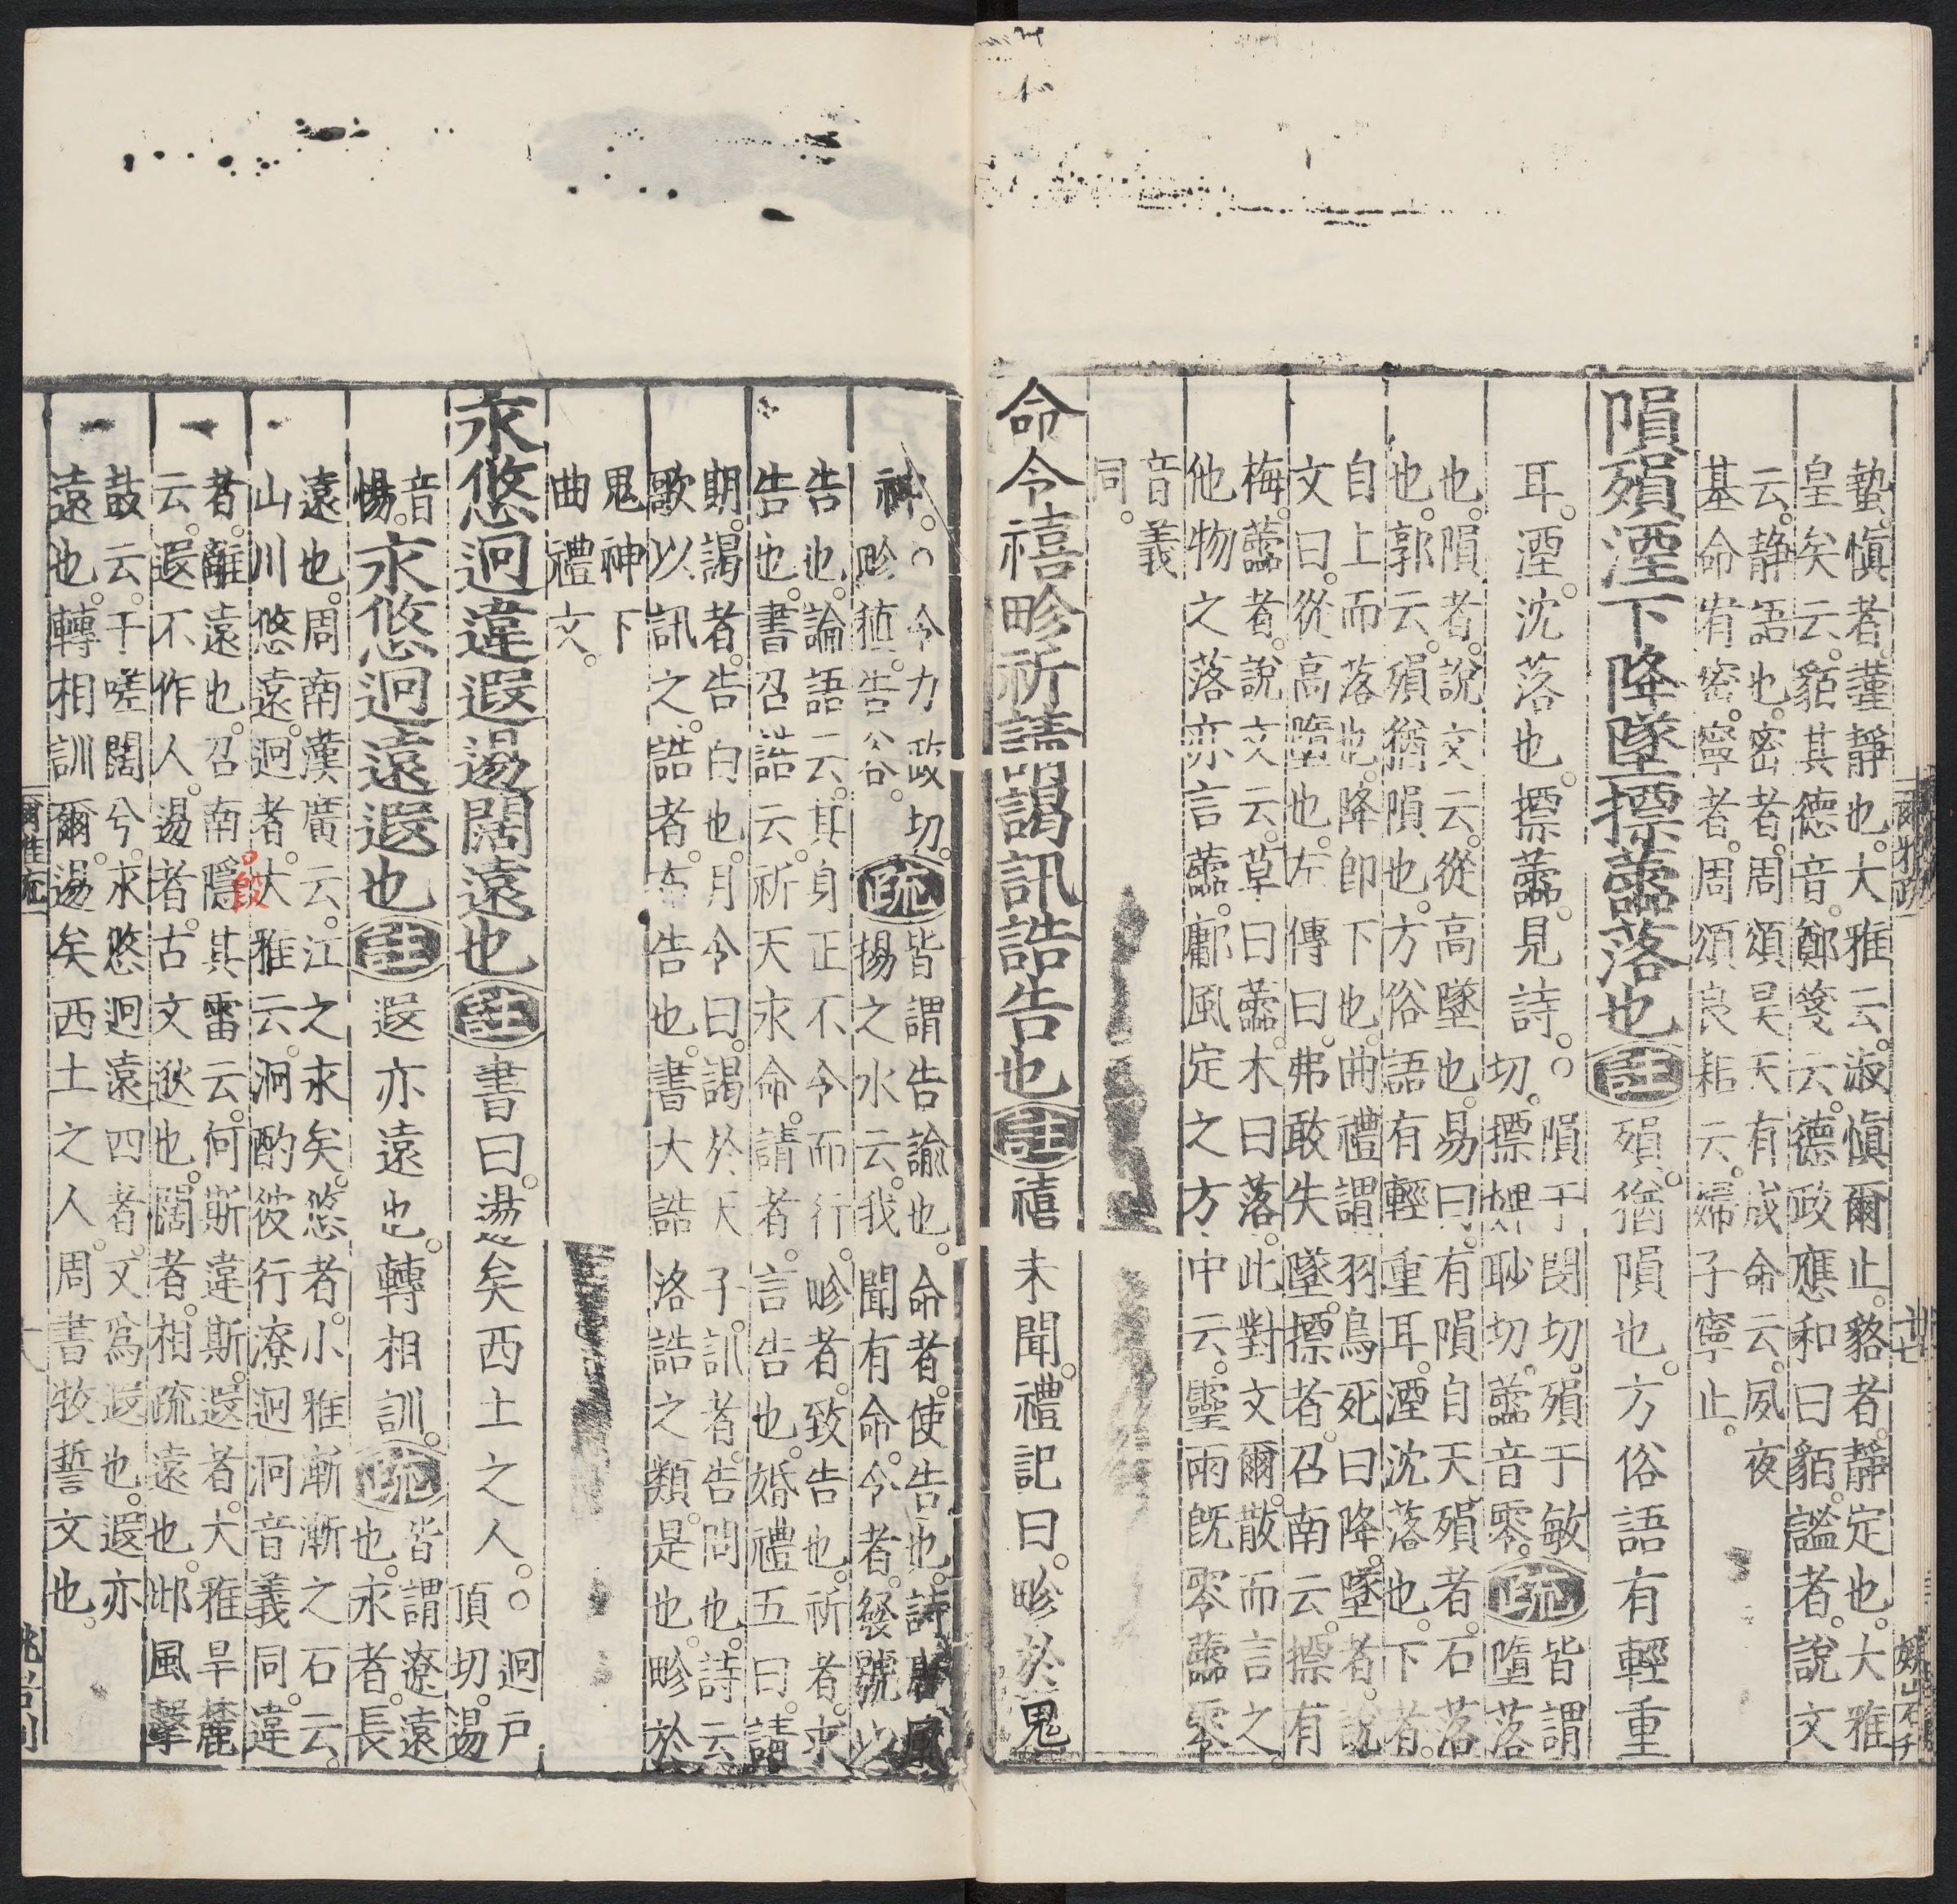 蟄。愼者。謹靜也。大雅云。淑愼爾止。貉者。靜定也。大雅
皇矣云。貊其德音。鄭箋云。德政應和曰貊。謐者。說文
云。静語也。密者。周頌昊天有成命云。夙夜
基命宥密。寧者。周頌良耜云。婦子寧止。
隕殞湮下降墜摽蘦落也註殞。猶隕也。方俗語有輕重
耳。湮。沈落也。摽蘦。見詩。○隕于閔切。殞于敏
切。摽婢眇切。蘦音零。疏皆謂墮落
也。隕者。說文云。從高墜也。易曰。有隕自天。殞者。石落
也。郭云。殞猶隕也。方俗語有輕重耳。湮沈落也。下者。
自上而落也。降即下也。曲禮謂羽鳥死曰降。墜者。說
文曰。從高墮也。左傳曰。弗敢失墜。摽者。召南云。摽有
梅。蘦者。說文云。草曰蘦。木曰落。此對文爾。散而言之。
他物之落亦言蘦。鄘風定之方中云。靈雨既零。蘦零
音義
同。
命令禧畛祈請謁訊誥告也註禧未聞。禮記曰。畛於鬼
神。○令力政切。
畛稹。告谷。疏皆謂告諭也。命者。使告也。詩唐風
揚之水云。我聞有命。令者。發號以
告也。論語云。其身正不令而行。畛者。致告也。祈者。求
告也。書召誥云。祈天永命。請者。言告也。婚禮五曰。請
期。謁者。告白也。月令曰。謁於天子。訊者。告問也。詩云
歌以訊之。誥者。布告也。書大誥洛誥之類是也。畛於
鬼神下
曲禮文。
永悠迥違遐逷闊遠也註書曰。逷矣西土之人。○迥户
頂切。逷
音
惕。永悠迥遠遐也註遐亦遠也。轉相訓。疏皆謂遼遠
也。永者。長
遠也。周南漢廣云。江之永矣。悠者。小雅漸漸之石云。
山川悠遠。迥者。大雅云。泂酌彼行潦。迥泂音義同。違
者。離遠也。召南殷其雷云。何斯違斯。遐者。大雅旱麓
云。遐不作人。逷者。古文逖也。闊者。相疏遠也。邶風擊
鼓云。于嗟闊兮。永悠迥遠四者。又爲遐也。遐亦
遠也。轉相訓爾。逷矣西土之人。周書牧誓文也。
爾雅疏